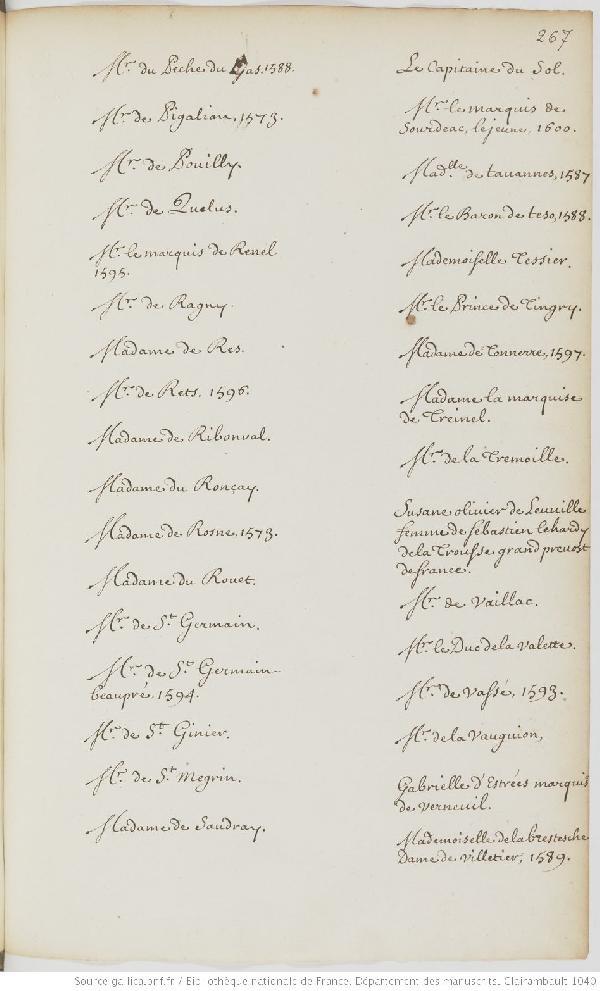 267
Mr. du Peche du Gas. 1588.
Mr. de Pigalion, 1573.
Mr. de Pouilly.
Mr. de Quelus.
Mr. le marquis de Renel
1595.
Mr. de Ragny.
Madame de Res.
Mr. de Rets, 1596.
Madame de Ribonval.
Madame du Ronçay.
Madame de Rosne, 1573.
Madame du Rouet.
Mr. de St. Germain.
Mr. de St. Germain-
beaupré, 1594.
Mr. de St. Ginier.
Mr. de St. Megrin.
Madame de Saudray.
Le Capitaine du Sol.
Mr. le marquis de
Sourdeac, le jeune, 1600.
Madlle de tauannes, 1587
Mr. le Baron de teso, 1588.
Mademoiselle Tessier.
Mr. le Prince de Tingry.
Madame de Tonnerre, 1597.
Madame la marquise
de Treinel.
Mr. de la Tremoille.
Susane oliuier de Leuuille
femme de sebastien le hardy
de la Trousse grand preuost
de france.
Mr. de Vaillac.
Mr. le Duc de la Valette.
Mr. de Vassé, 1593.
Mr. de la Vauguion,
Gabrielle d'Estrées marquis
de Verneuil.
Mademoiselle de la bretesche
Dame de Villetier, 1589.
Source gallica.bnf.fr / Bibliothèque nationale de France. Département des manuscrits. Clairambault 1040